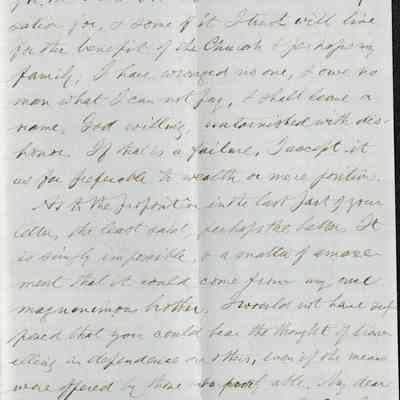 sation for, & some of it I trust will live
for the benefit of the Church & perhaps my
family. I have wronged no one, & owe no
man what I can not pay, & shall leave a
name, God willing, untarnished with dis-
honor. If that is a failure, I accept it
as far preferable to wealth or mere position.
As to the proposition in the last part of your
letter, the least said, perhaps the better. It
is simply impossible, & a matter of amaze-
ment that it could come from my own
magnanimous brother. I would not have sup-
posed that you could bear the thought of trav-
elling in dependence on others, even if the means
were offered by those able. My dear